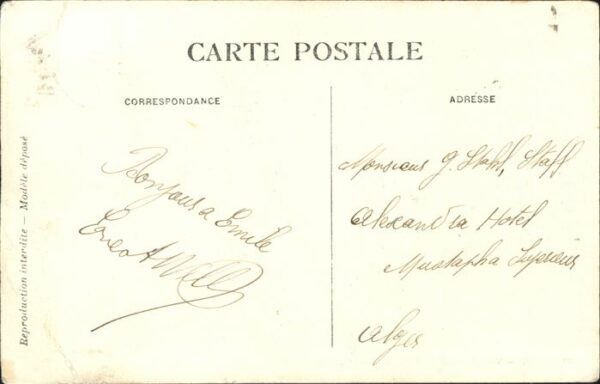 CARTE POSTALE
CORRESPONDANCE
ADRESSE
Reproduction interdite — Modèle déposé
Bonjour a Emile
Monsieur G. Stahl, Staff
Alexandra Hotel
Mustapha Superieur
Alger